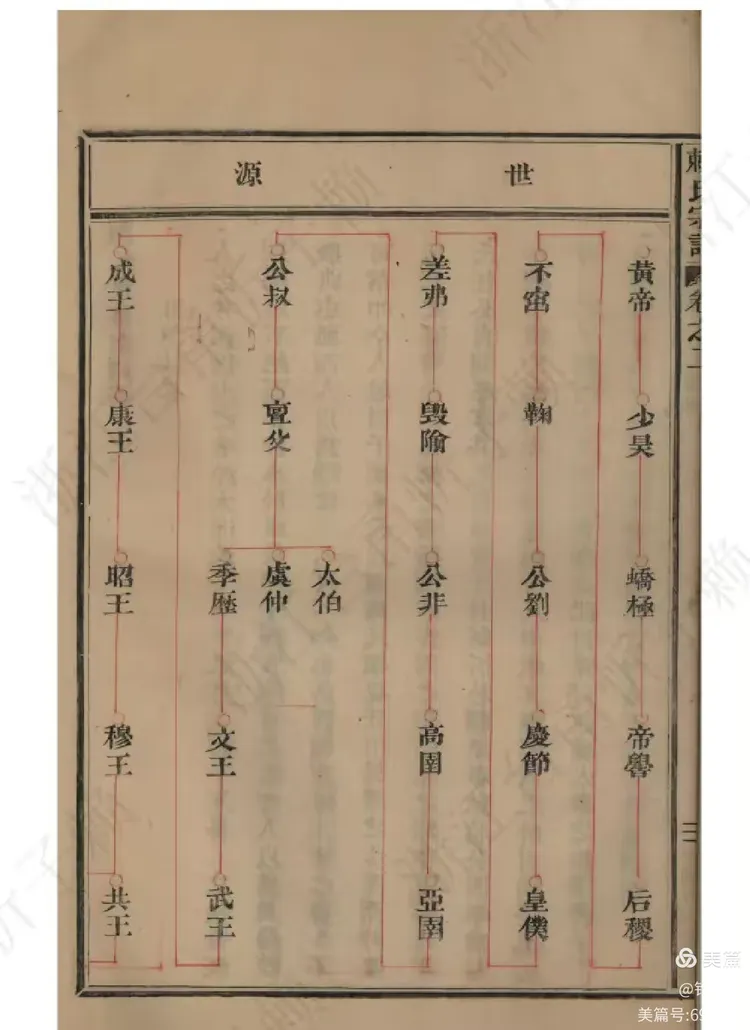 賴氏宗譜
卷之二
世源
黃帝
少昊
蟜極
帝嚳
后稷
不窋
鞠
公劉
慶節
皇僕
差弗
毀隃
公非
高圉
亞圉
公叔
亶父
太伯
虞仲
季歷
文王
武王
成王
康王
昭王
穆王
共王
三
美篇
美篇号:69